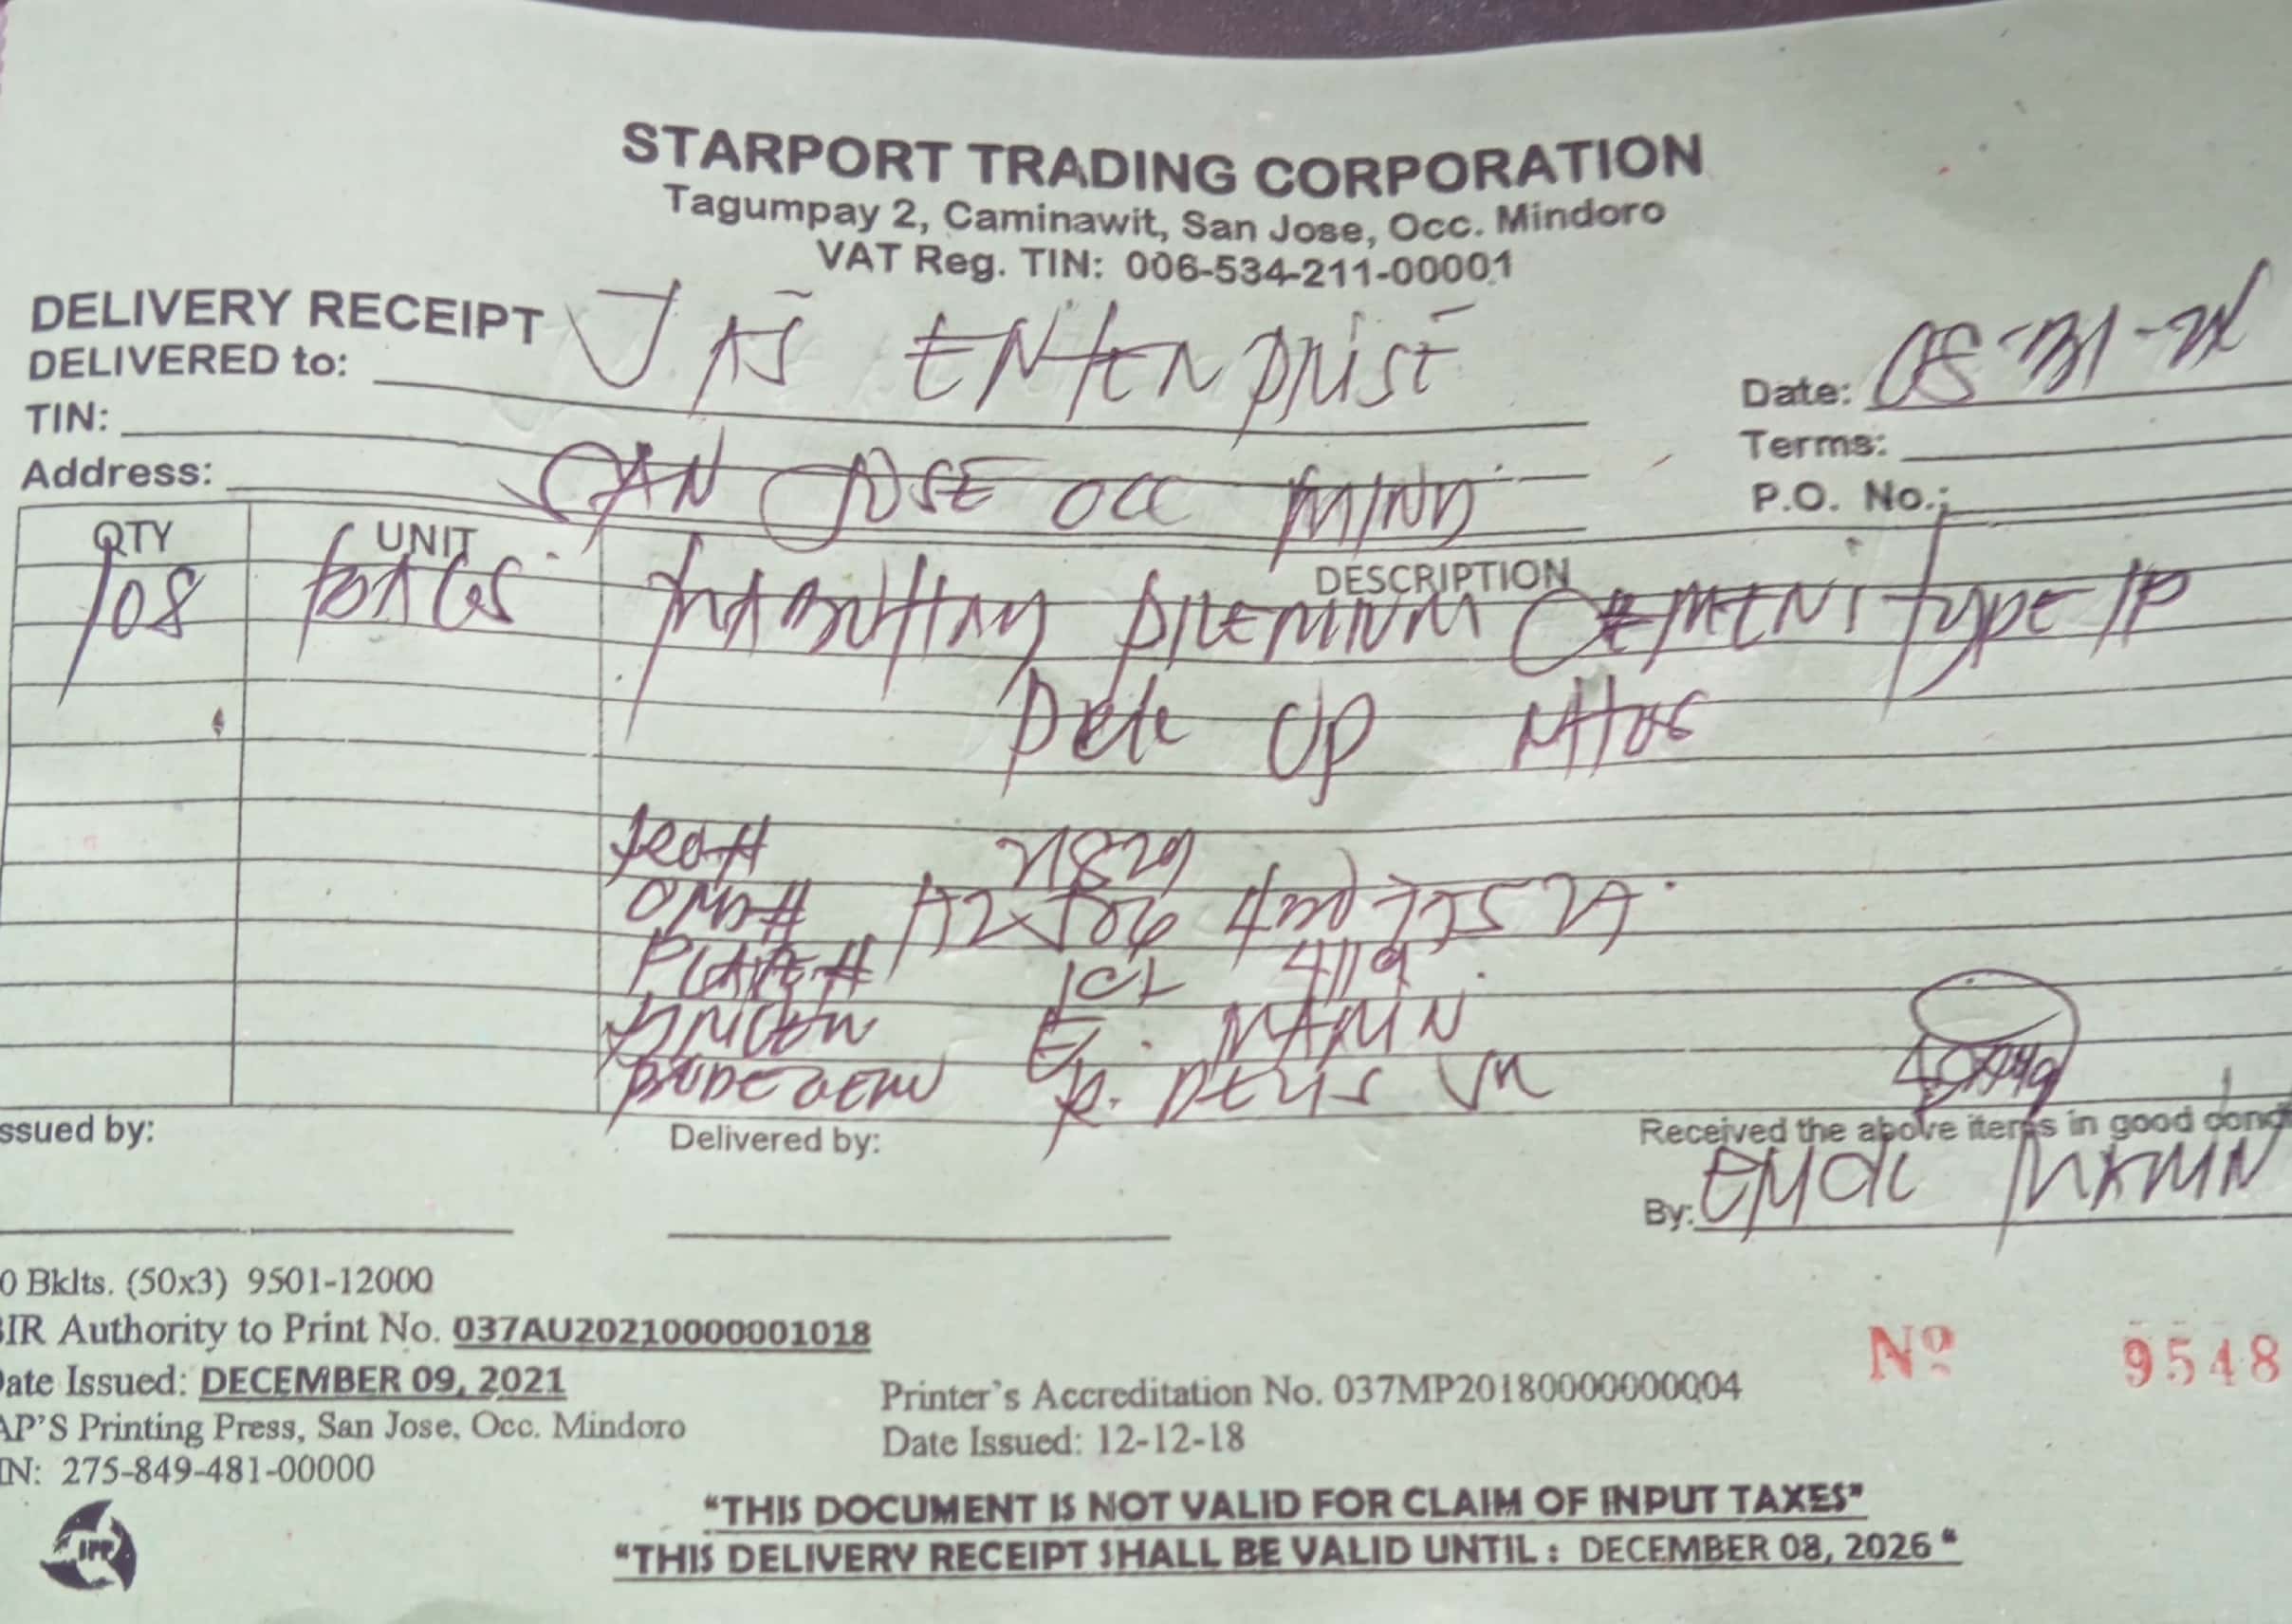 STARPORT TRADING CORPORATION
Tagumpay 2, Caminawit, San Jose, Occ. Mindoro
VAT Reg. TIN: 006-534-211-00001
DELIVERY RECEIPT
DELIVERED to: JAS ENTERPRISE
Date: 08-31-22
TIN:
Terms:
Address: SAN JOSE OCC MIND
P.O. No.:
QTY UNIT DESCRIPTION
108 BAGS PREMIUM CEMENT TYPE 1P
UP
PLATE # 4119
DRIVER E. MARIN
R. JR
ssued by:
Delivered by:
Received the above items in good cond
By: MARIN
0 Bklts. (50x3) 9501-12000
BIR Authority to Print No. 037AU20210000001018
Date Issued: DECEMBER 09, 2021
AP'S Printing Press, San Jose, Occ. Mindoro
IN: 275-849-481-00000
Printer's Accreditation No. 037MP20180000000004
Date Issued: 12-12-18
Nº 9548
IPP
"THIS DOCUMENT IS NOT VALID FOR CLAIM OF INPUT TAXES"
"THIS DELIVERY RECEIPT SHALL BE VALID UNTIL : DECEMBER 08, 2026 "